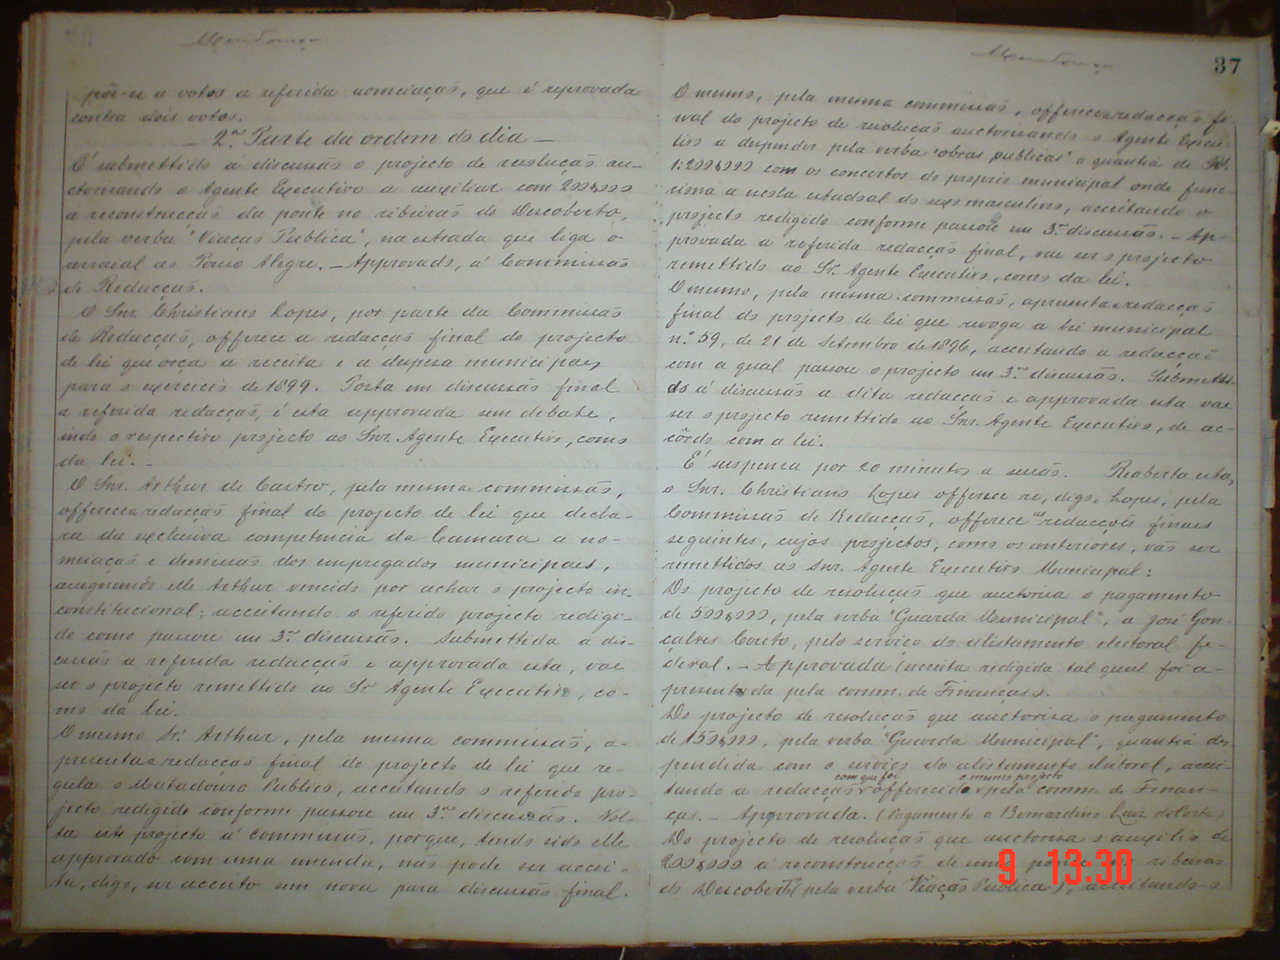 Mendonça
põe-se a votos a referida nomeação, que é reprovada
contra dois votos.
— 2ª Parte da ordem do dia —
É submettido á discussão o projecto de resolução au-
ctorisando o Agente Executivo a auxiliar com 200$000
a reconstrucção da ponte no ribeirão do Descoberto,
pela verba "Viação Publica", na estrada que liga o
arraial ao Pouso Alegre. — Approvado, á Commissão
de Redacção.
O Snr. Christiano Lopes, por parte da Commissão
de Redacção, offerece a redacção final do projecto
de lei que orça a receita e a despesa municipaes
para o exercicio de 1899. Posta em discussão final
a referida redacção, é esta approvada sem debate,
indo o respectivo projecto ao Snr. Agente Executivo, como
da lei. —
O Snr. Arthur de Castro, pela mesma commissão,
offerece a redacção final do projecto de lei que decla-
ra da exclusiva competencia da Camara a no-
meação e demissão dos empregados municipaes,
assignando elle Arthur vencido por achar o projecto in-
constitucional; acceitando o referido projecto redigi-
do como passou em 3ª discussão. Submettida á dis-
cussão a referida redacção e approvada esta, vae
ser o projecto remettido ao Sr. Agente Executivo, co-
mo da lei.
O mesmo Sr. Arthur, pela mesma commissão, a-
presenta a redacção final do projecto de lei que re-
gula o Matadouro Publico, acceitando o referido pro-
jecto redigido conforme passou em 3ª discussão. Vol-
ta este projecto á commissão, porque, tendo sido elle
approvado com uma emenda, não pode ser accei-
ta, digo, ser acceito sem nova para discussão final.
Mendonça
37
O mesmo, pela mesma commissão, offerece a redacção fi-
nal do projecto de resolução auctorisando o Agente Execu-
tivo a despender pela verba "obras publicas" a quantia de
1:200$000 com os concertos do proprio municipal onde func-
ciona a escola estadoal do sexo masculino, acceitando o
projecto redigido conforme passou em 3ª discussão. — Ap-
provada a referida redacção final, vae ser o projecto
remettido ao Sr. Agente Executivo, como da lei.
O mesmo, pela mesma commissão, apresenta a redacção
final do projecto de lei que revoga a lei municipal
n.º 59, de 21 de Setembro de 1896, acceitando a redacção
com a qual passou o projecto em 3ª discussão. Submetti-
da á discussão a dita redacção e approvada esta vae
ser o projecto remettido ao Snr. Agente Executivo, de ac-
côrdo com a lei.
É suspensa por 20 minutos a sessão. Reaberta esta,
o Snr. Christiano Lopes offerece re, digo, Lopes, pela
Commissão de Redacção, offerece as redacções finaes
seguintes, cujos projectos, como os anteriores, vão ser
remettidos ao Snr. Agente Executivo Municipal:
Do projecto de resolução que auctorisa o pagamento
de 500$000, pela verba "Guarda Municipal", a José Gon-
çalves Couto, pelo serviço do alistamento eleitoral fe-
deral. — Approvada (acceita redigida tal qual foi a-
presentada pela comm. de Finanças).
Do projecto de resolução que auctorisa o pagamento
de 150$000, pela verba "Guarda Municipal", quantia des-
pendida com o serviço do alistamento eleitoral, accei-
tando a redacção com que foi offerecido o mesmo projecto pela comm. de Finan-
ças. — Approvada. (Pagamento a Bernardino Luiz da Costa)
Do projecto de resolução que auctorisa o auxilio de
200$000 á reconstrucção de uma ponte no ribeirão
do Descoberto (pela verba Viação Publica), acceitando-o
9 13:30